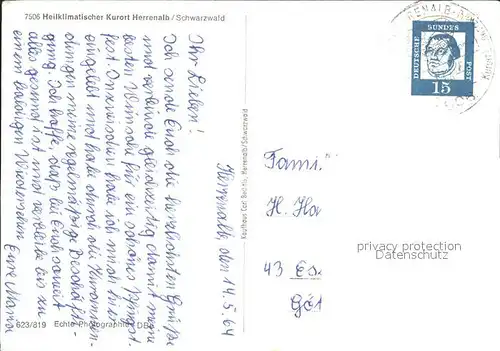 7506 Heilklimatischer Kurort Herrenalb / Schwarzwald
Herrenalb, den 14.5.64
Ihr Lieben!
Ich sende Euch die herzlichsten Grüße
und verbinde gleichzeitig damit meine
besten Wünsche für ein schönes Pfingst-
fest. Inzwischen habe ich mich hier
eingelebt und habe durch die
meine regelmäßige Beschäfti-
gung. Ich hoffe, daß bei Euch soweit
alles gesund ist und verbleibe bis zu
einem baldigen Wiedersehen Eure Maria
623/819 Echte Photographie
Kaufhaus Carl Herrenalb/Schwarzwald
DEUTSCHE BUNDESPOST
15
Fami
H. Ha
43 Es
Göt
privacy protection
watermark